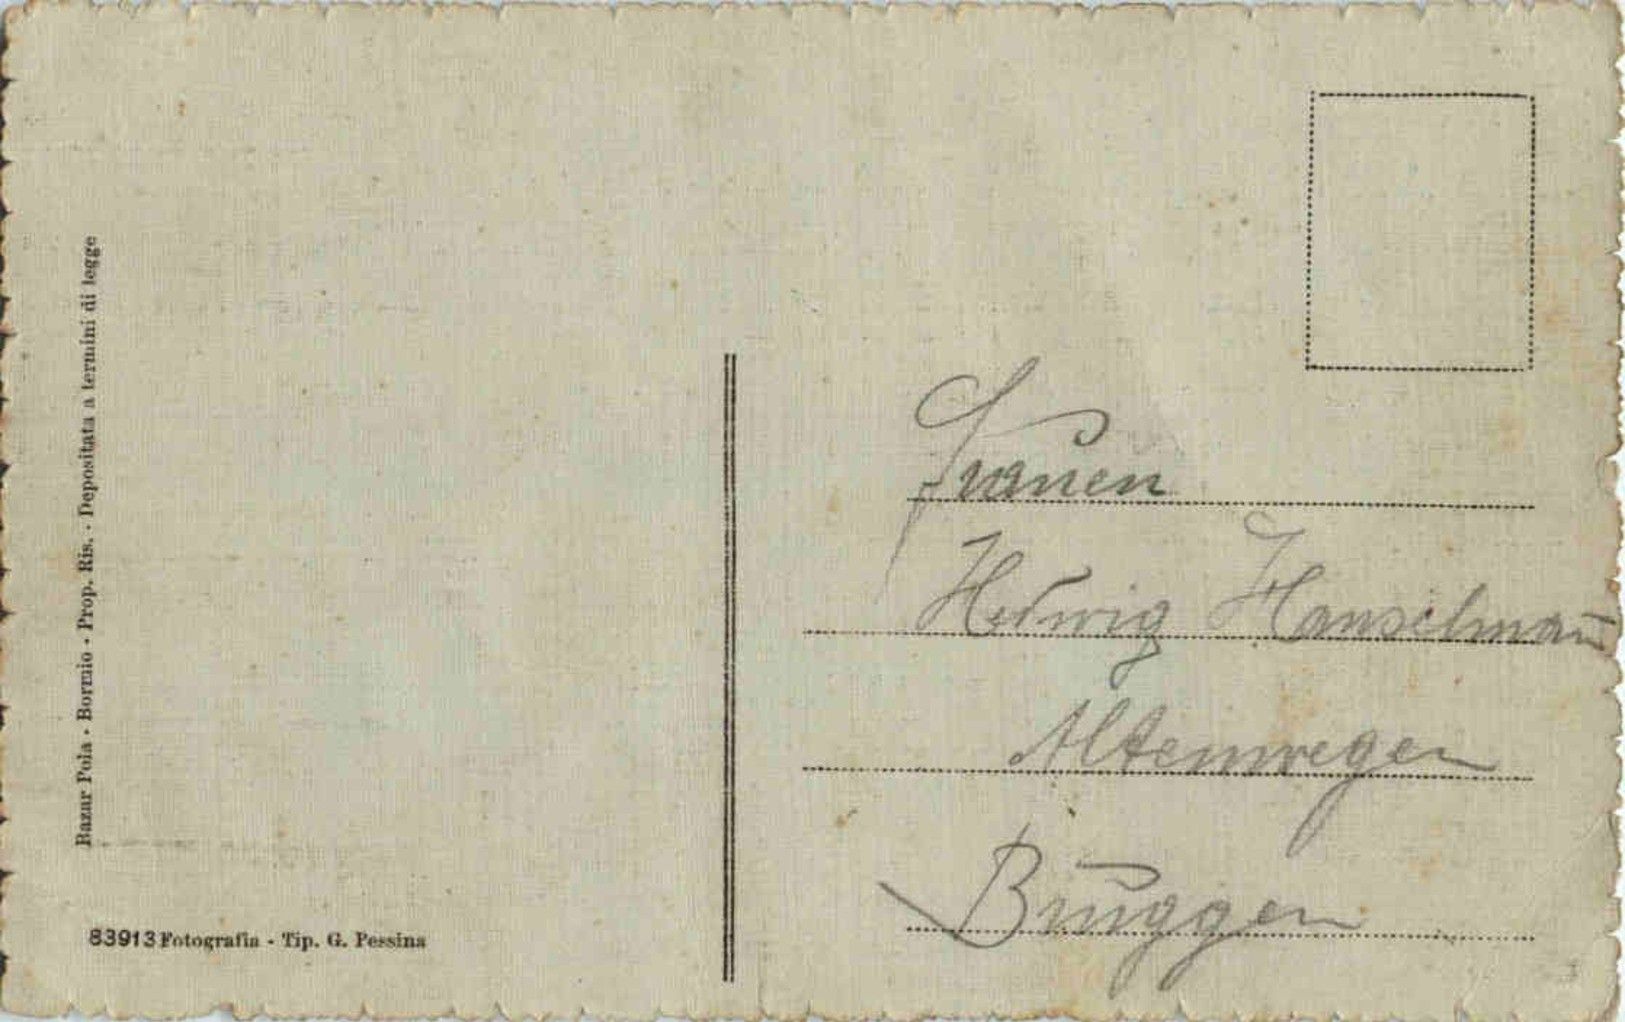 Bazar Pola - Bormio - Prop. Ris. - Depositata a termini di legge
83913 Fotografia - Tip. G. Pessina
Hedwig Hanselmann
Altenwegen
Bruggen